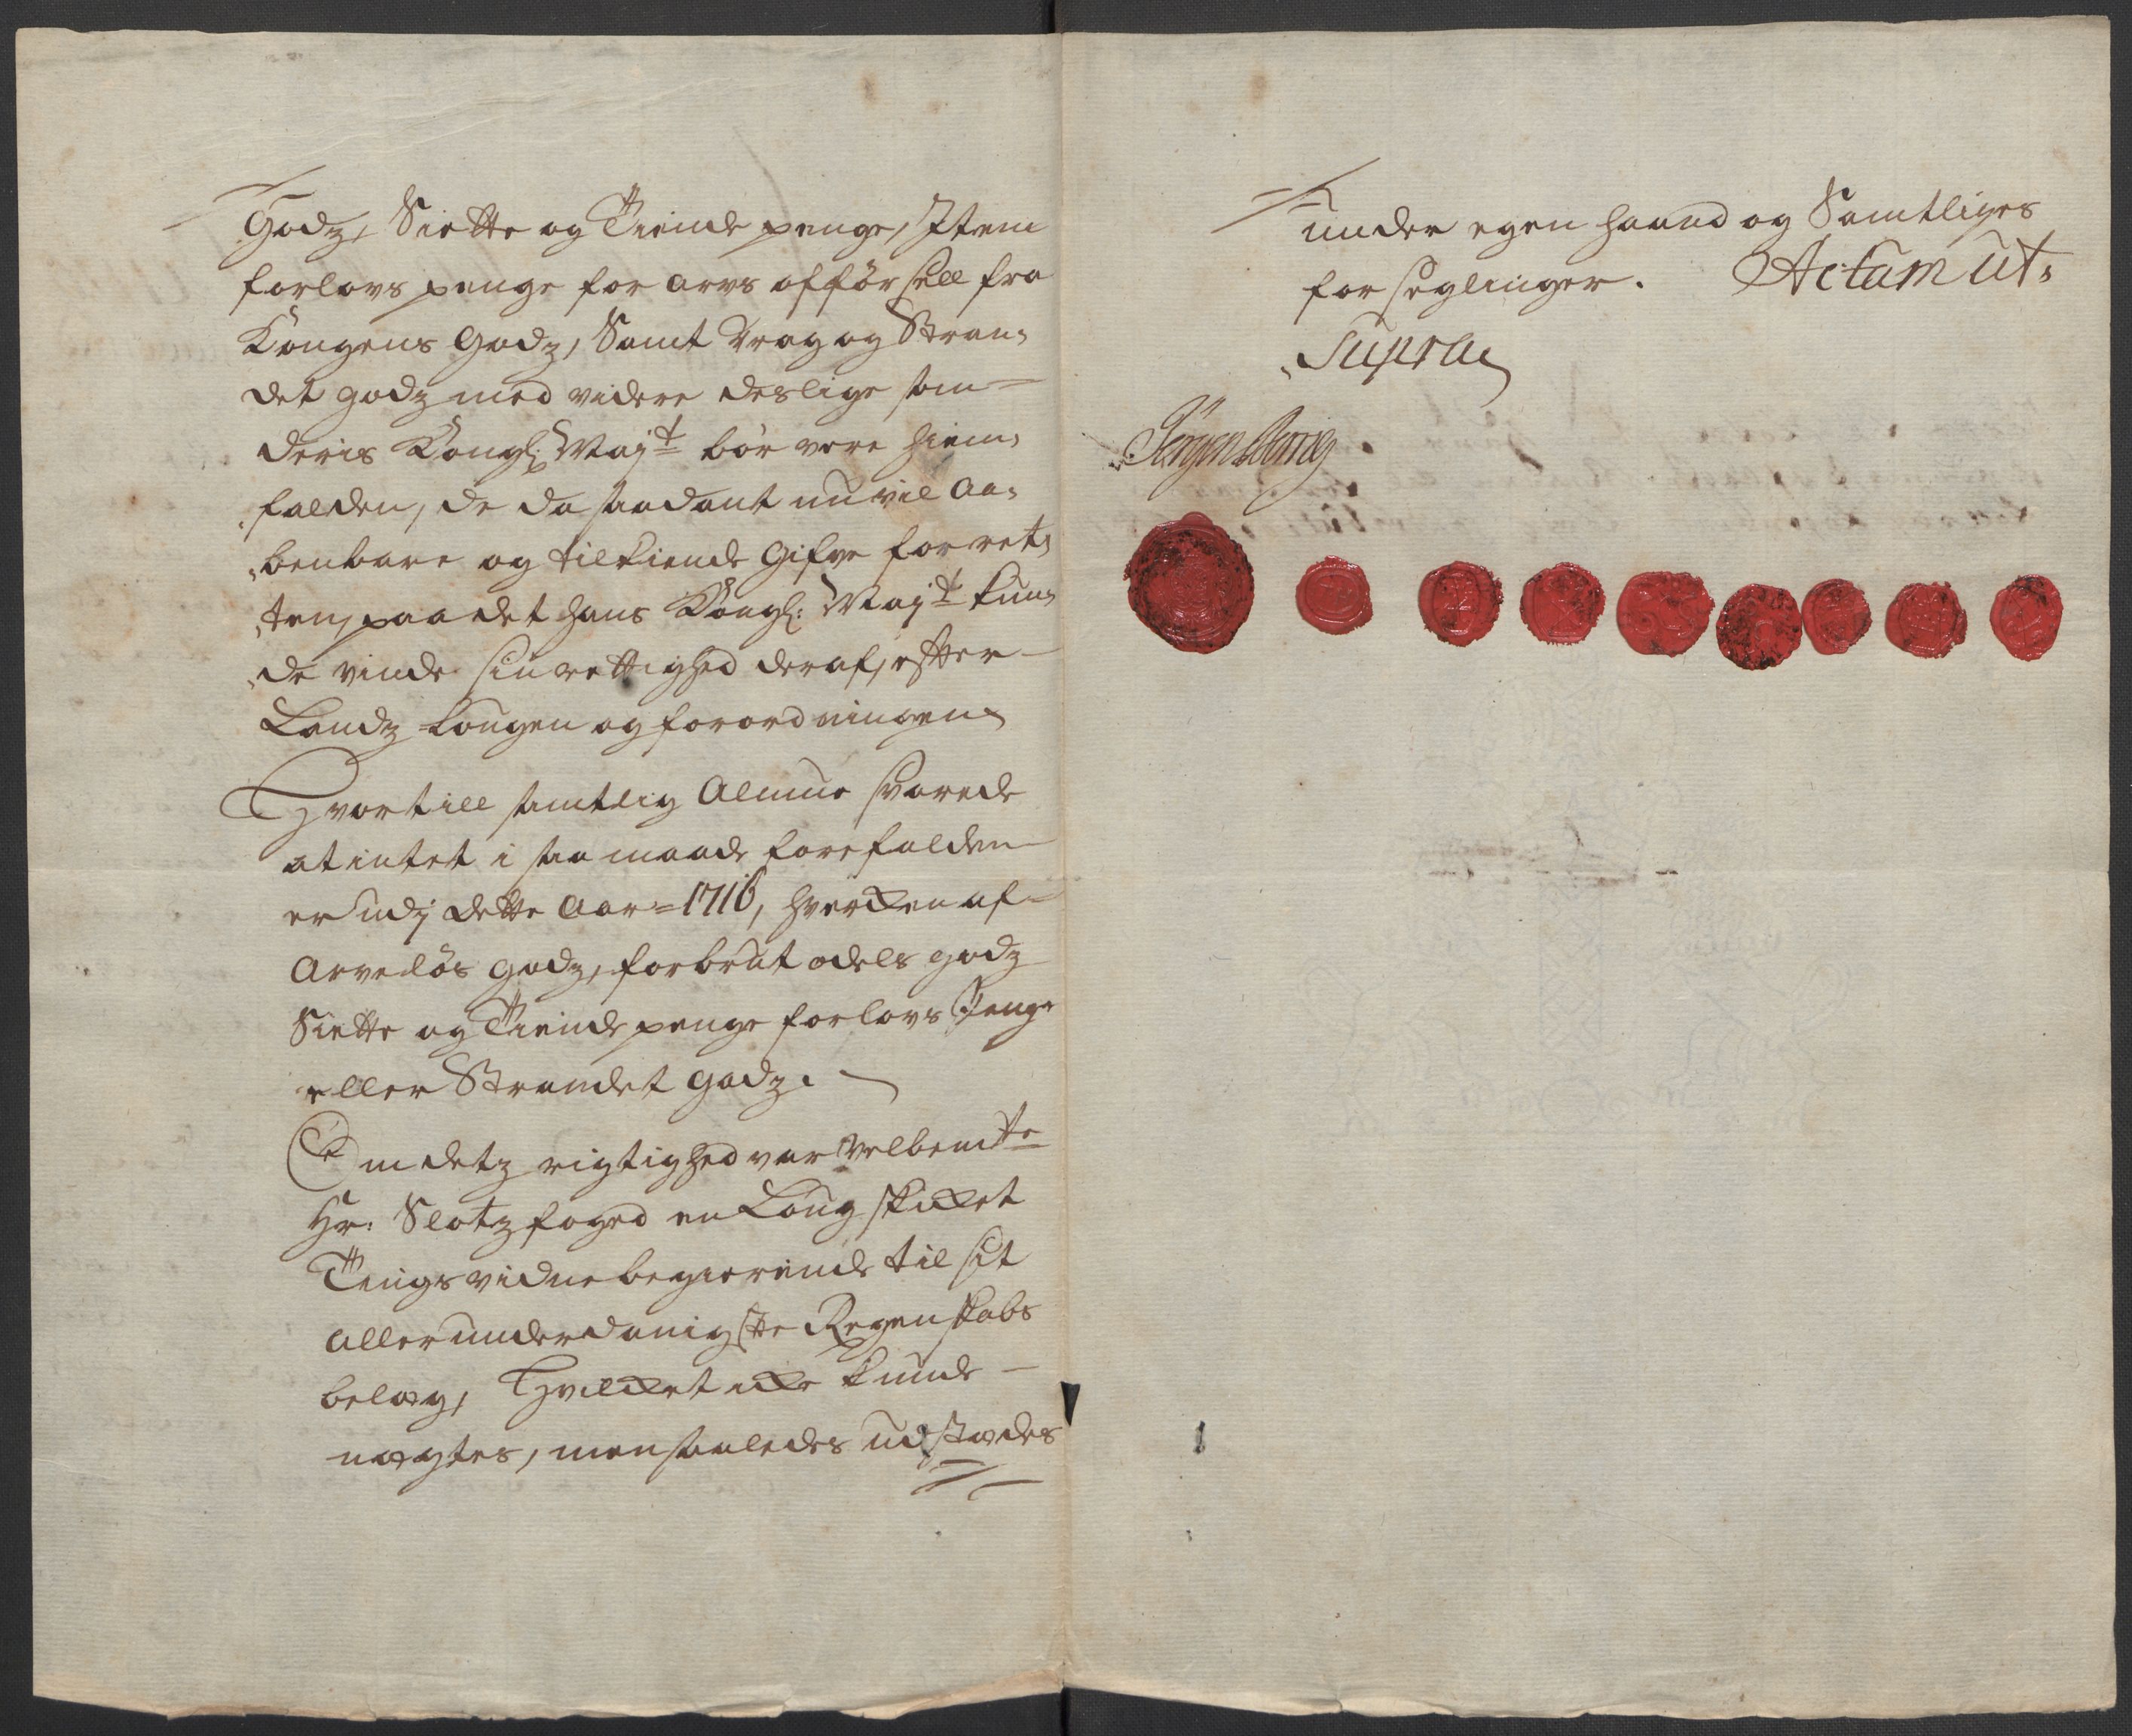 Godz, Siette og Tiende penge, Item
forlovs penge for arvs afförsell fra
Kongens Godz, Samt Vrag og Stran,
det godz med videre deslige som
deris Kongl: Maÿt bör vere hiem,
falden, de da saadant nu vil Aa,
benbare og tilkiende Gifve for ret,
ten, paa det hans Kongl: Maÿt kun,
de vinde sin rettighed deraf, efter
Landz Lougen og forordningen
Hvortill samtlig Almue svarede
at intet i saa maade forefalden
er udj dette Aar = 1716, hvercken af
Arvelös godz, forbrut odels godz
Siette og Tiende penge forlovs Penge
eller Strandet godz.
Om detz rigtighed var Velbemte
Hr: Slotzfoged en Loug skicket
Tings vidne begierende til sit
allerunderdanigste Regenskabs
belæg, Hvilcket icke kunde
nægtes, men saaledes udstædes
under egen haand og Samtliges
forseglinger. Actum ut,
Supra
Jörgen